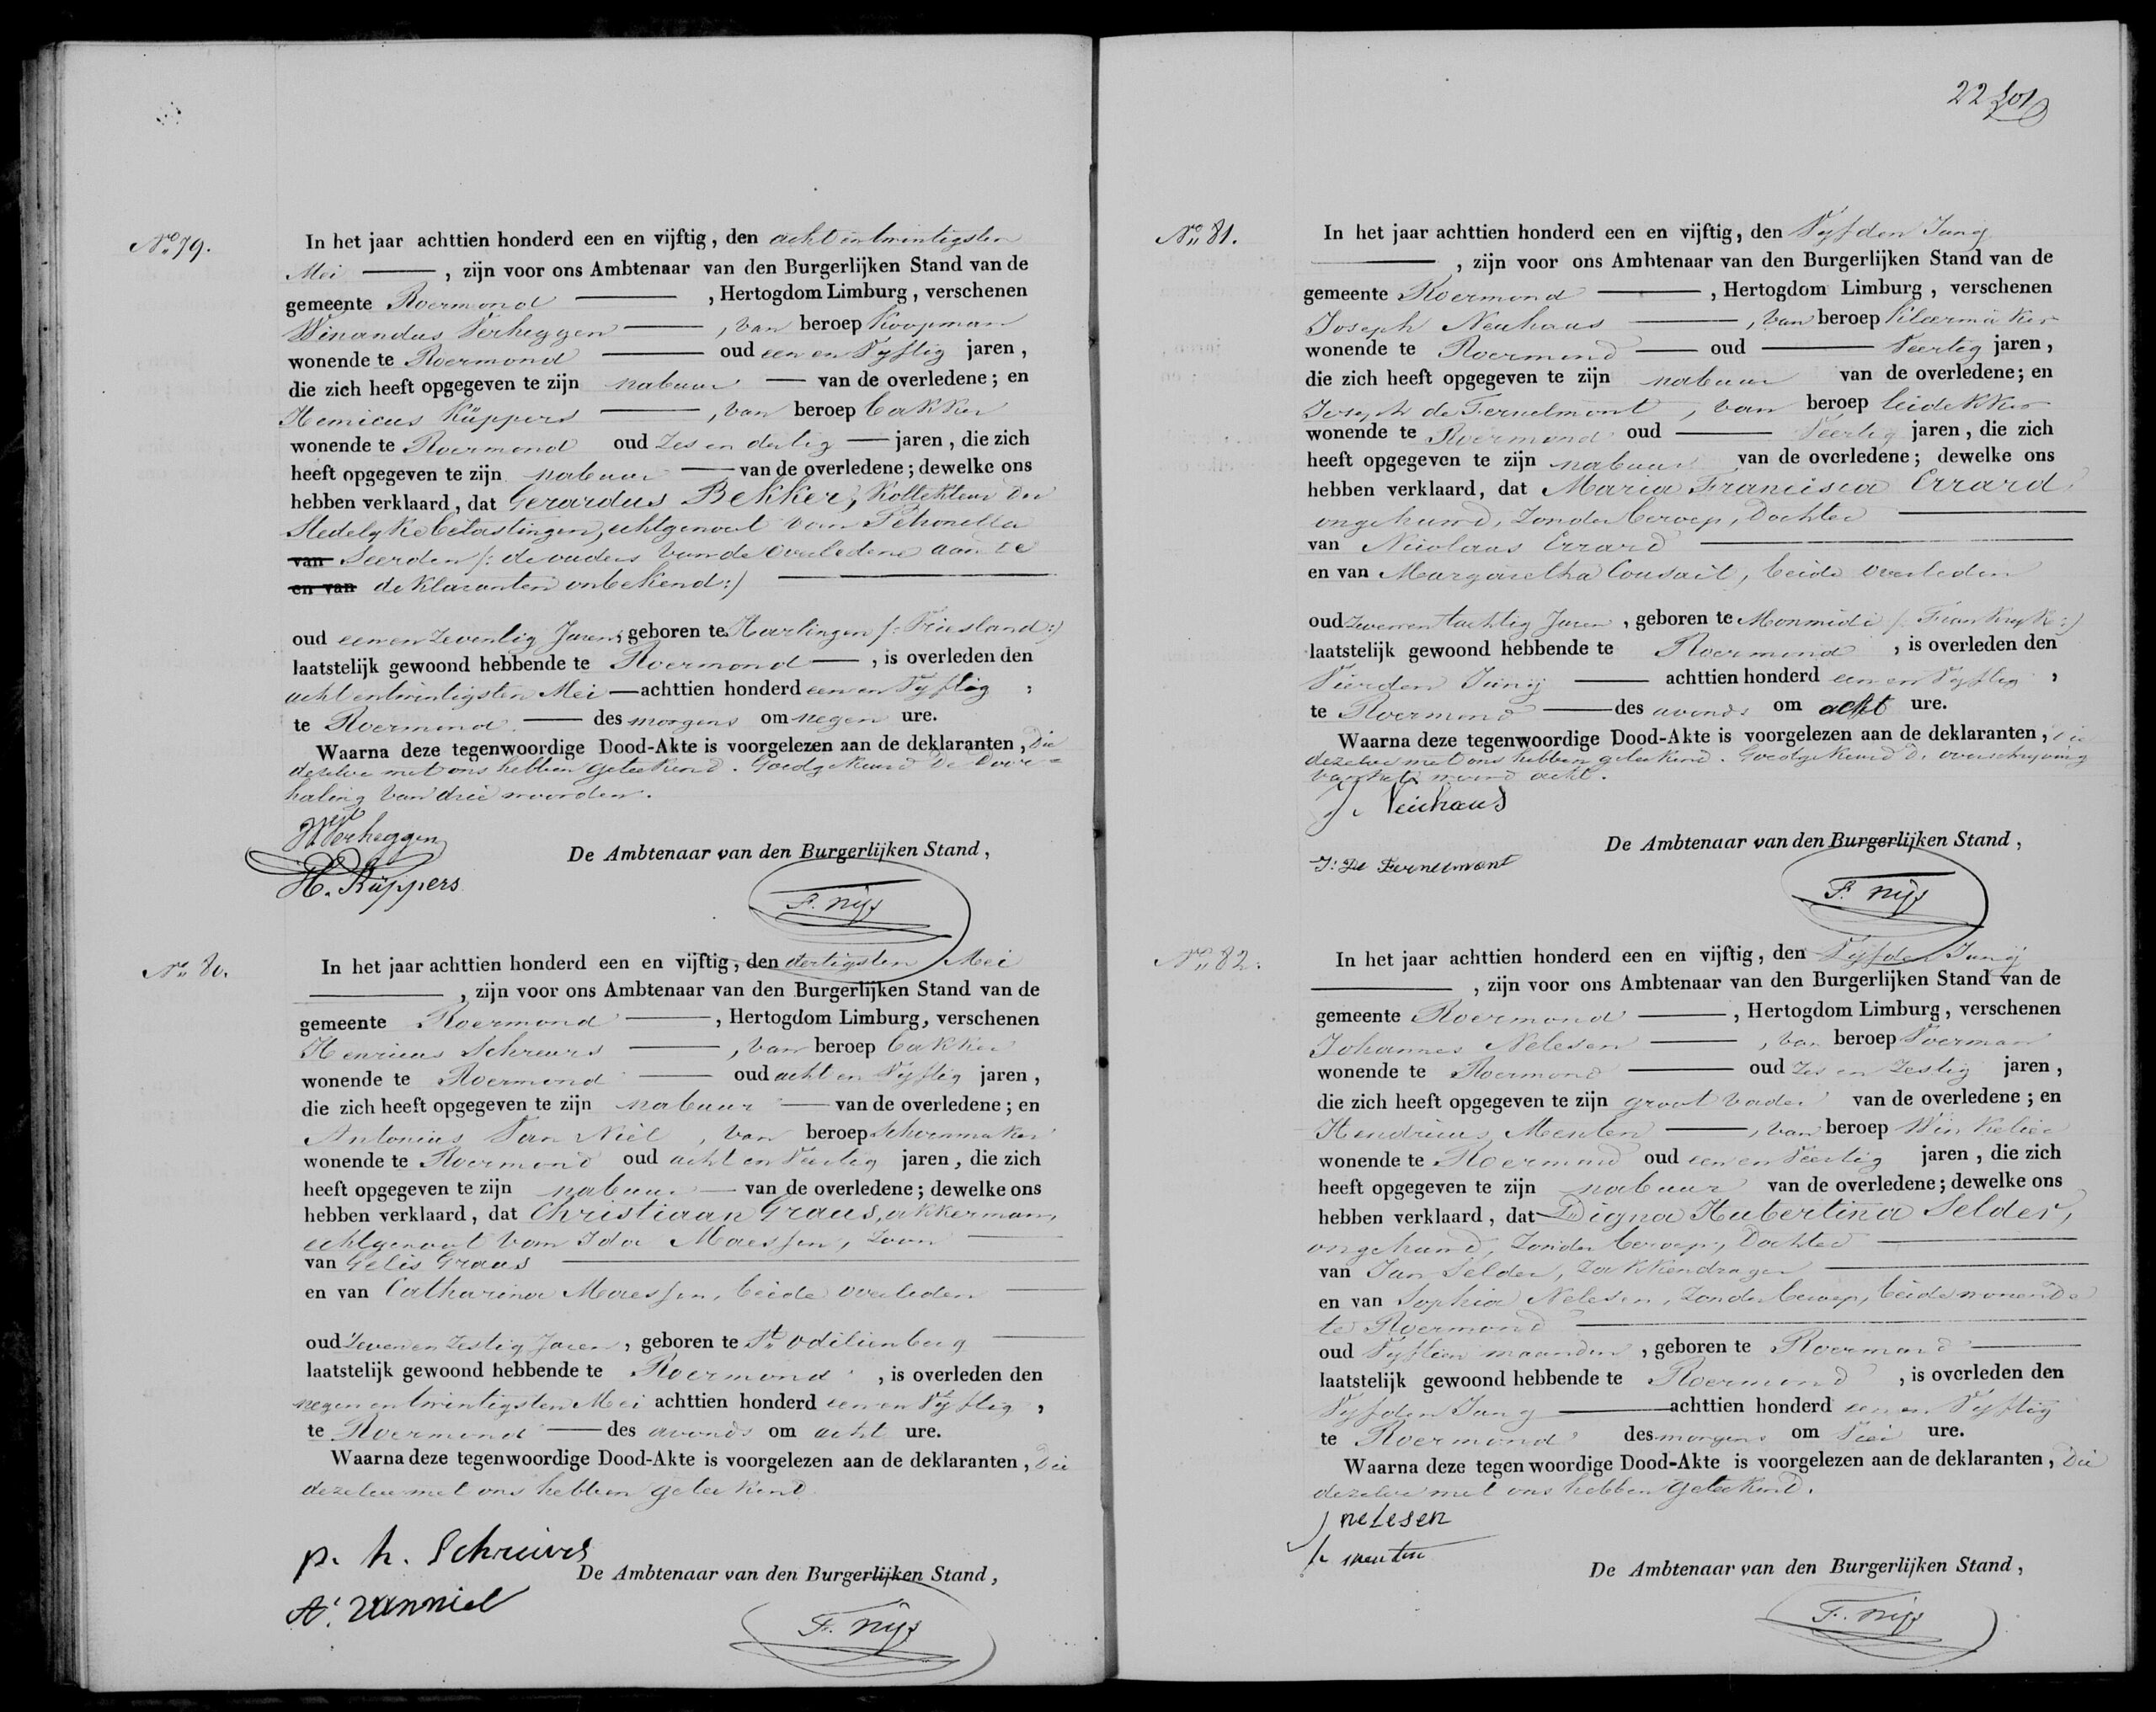 No. 79.
In het jaar achttien honderd een en vijftig, den achtentwintigsten
Mei ——, zijn voor ons Ambtenaar van den Burgerlijken Stand van de
gemeente Roermond ——, Hertogdom Limburg, verschenen
Winandus Verheggen ——, van beroep Koopman
wonende te Roermond —— oud een en Vyftig jaren,
die zich heeft opgegeven te zijn nabuur — van de overledene; en
Henricus Küppers ——, van beroep bakker
wonende te Roermond oud Zes en dertig — jaren, die zich
heeft opgegeven te zijn nabuur — van de overledene; dewelke ons
hebben verklaard, dat Gerardus Bekker, Kollekteur der
Stedelyke belastingen, echtgenoot van Petronella
van Seerden /: de ouders van de overledene aan de
en van deklaranten onbekend :/ ——
oud een en Zeventig Jaren, geboren te Harlingen /: Friesland :/
laatstelijk gewoond hebbende te Roermond —, is overleden den
acht entwintigsten Mei — achttien honderd een en Vyftig,
te Roermond — des morgens om negen ure.
Waarna deze tegenwoordige Dood-Akte is voorgelezen aan de deklaranten, Die
dezelve met ons hebben geteekend. Goedgekeurd De Door=
haling van drie woorden.
W Verheggen
H. Küppers
De Ambtenaar van den Burgerlijken Stand,
F. Nijs
No. 80.
In het jaar achttien honderd een en vijftig, den dertigsten Mei
——, zijn voor ons Ambtenaar van den Burgerlijken Stand van de
gemeente Roermond ——, Hertogdom Limburg, verschenen
Henricus Schreurs ——, van beroep bakker
wonende te Roermond —— oud acht en Vyftig jaren,
die zich heeft opgegeven te zijn nabuur — van de overledene; en
Antonius Van Niel, van beroep Schoenmaker
wonende te Roermond oud acht en Veertig jaren, die zich
heeft opgegeven te zijn nabuur — van de overledene; dewelke ons
hebben verklaard, dat Christiaan Graus, akkerman,
echtgenoot van Ida Maessen, Zoon ——
van Gelis Graus ——
en van Catharina Maessen, beide overleden ——
oud Zeven en Zestig Jaren, geboren te St. Odilienberg ——
laatstelijk gewoond hebbende te Roermond, is overleden den
negen entwintigsten Mei achttien honderd een en Vyftig,
te Roermond — des avonds om acht ure.
Waarna deze tegenwoordige Dood-Akte is voorgelezen aan de deklaranten, Die
dezelve met ons hebben geteekend.
p. h. Schreurs
A. van niel
De Ambtenaar van den Burgerlijken Stand,
F. Nijs
22
No. 81.
In het jaar achttien honderd een en vijftig, den Vyfden Juny
——, zijn voor ons Ambtenaar van den Burgerlijken Stand van de
gemeente Roermond ——, Hertogdom Limburg, verschenen
Joseph Neuhaus ——, van beroep Kleermaker
wonende te Roermond — oud —— Veertig jaren,
die zich heeft opgegeven te zijn nabuur van de overledene; en
Joseph de Fernelmont, van beroep leidekker
wonende te Roermond oud —— Veertig jaren, die zich
heeft opgegeven te zijn nabuur van de overledene; dewelke ons
hebben verklaard, dat Maria Francisca Errard,
ongehuwd, Zonder beroep, Dochter ——
van Nicolaus Errard ——
en van Margaretha Cousait, beide overleden
oud Tweeen tachtig Jaren, geboren te Monmidi /: Frankryk :/
laatstelijk gewoond hebbende te Roermond, is overleden den
Vierden Junij —— achttien honderd een en Vyftig,
te Roermond —— des avonds om acht ure.
Waarna deze tegenwoordige Dood-Akte is voorgelezen aan de deklaranten, Die
dezelve met ons hebben geteekend. Goedgekeurd de overschryving
van het woord acht.
J. Neuhaus
J: De Fernelmont
De Ambtenaar van den Burgerlijken Stand,
F. Nijs
No. 82.
In het jaar achttien honderd een en vijftig, den Vyfden Junij
——, zijn voor ons Ambtenaar van den Burgerlijken Stand van de
gemeente Roermond ——, Hertogdom Limburg, verschenen
Johannes Nelesen ——, van beroep Voerman
wonende te Roermond —— oud Zes en Zestig jaren,
die zich heeft opgegeven te zijn groot vader van de overledene; en
Hendricus Menten ——, van beroep Winkelier
wonende te Roermond oud een en Veertig jaren, die zich
heeft opgegeven te zijn nabuur van de overledene; dewelke ons
hebben verklaard, dat Digna Hubertina Selder,
ongehuwd, Zonder beroep, Dochter ——
van Jan Selder, Zakkendrager ——
en van Sophia Nelesen, Zonder beroep, beide wonende
te Roermond ——
oud Vyftien maanden, geboren te Roermond ——
laatstelijk gewoond hebbende te Roermond, is overleden den
Vyfden Juny —— achttien honderd een en Vyftig
te Roermond des morgens om Vier ure.
Waarna deze tegenwoordige Dood-Akte is voorgelezen aan de deklaranten, Die
dezelve met ons hebben geteekend.
J nelesen
h menten
De Ambtenaar van den Burgerlijken Stand,
F. Nijs